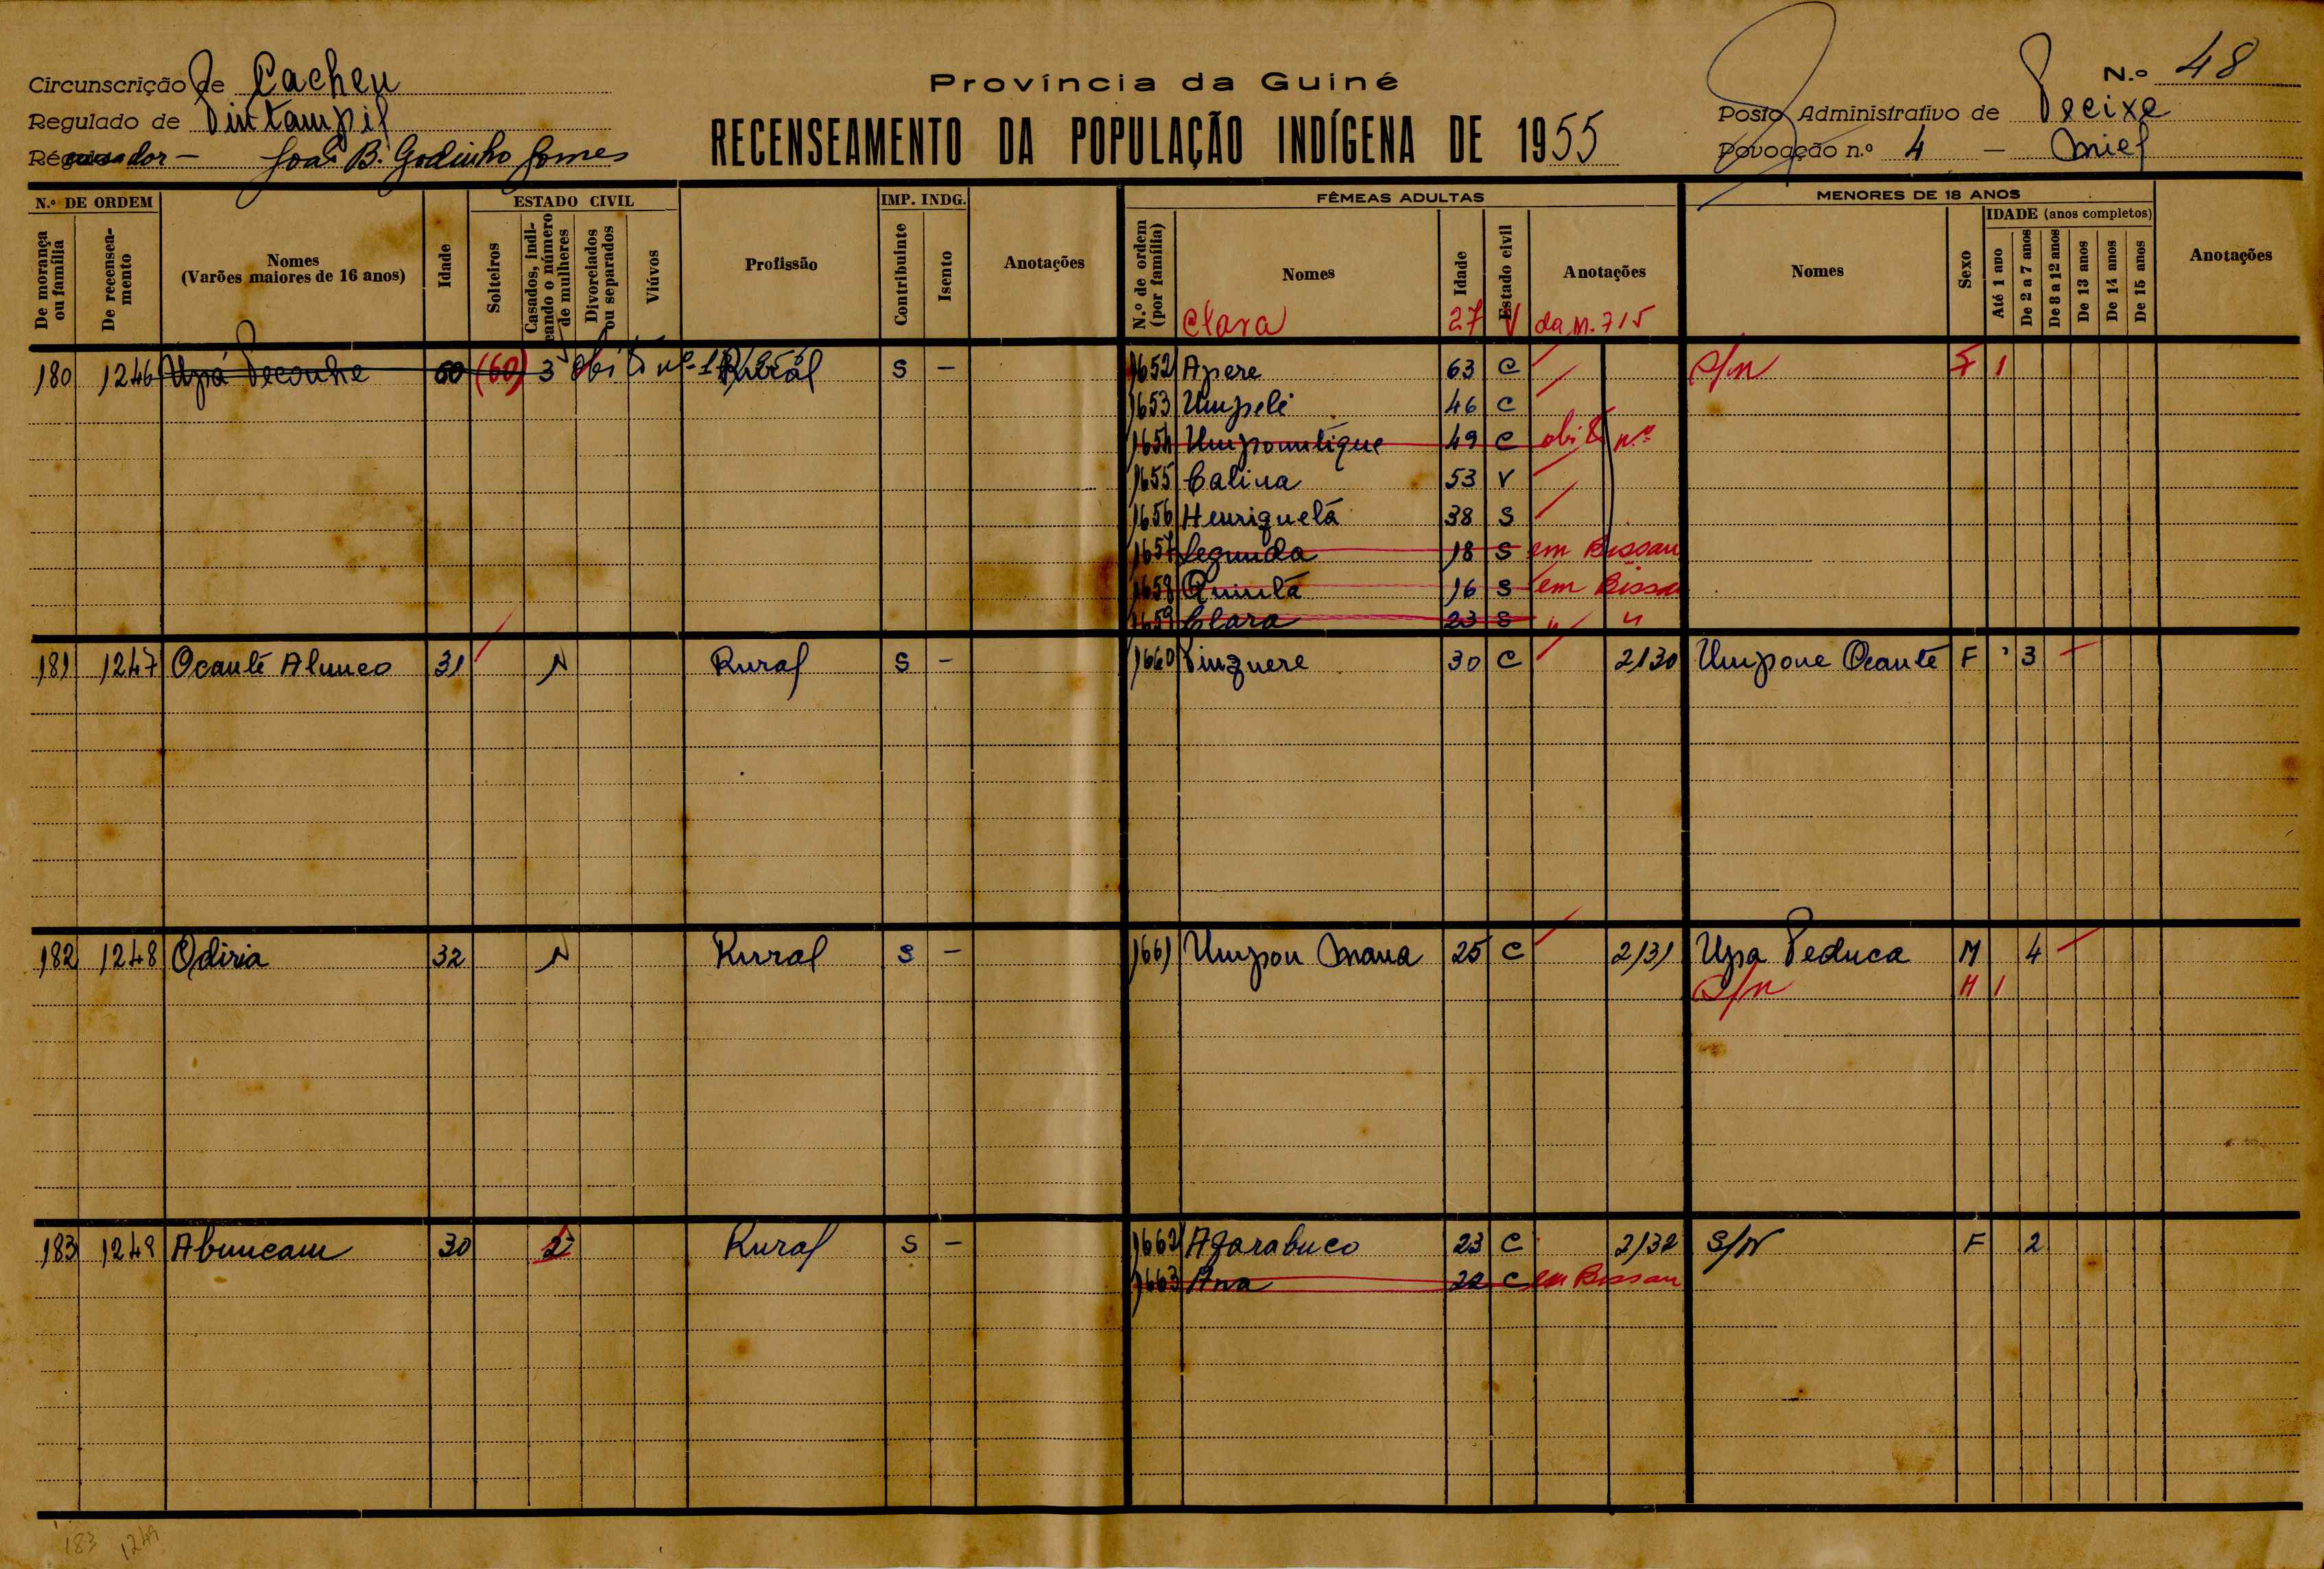 Circunscrição de Cacheu
Província da Guiné
N.º 48
Regulado de Pintampil
Posto Administrativo de Pecixe
RECENSEAMENTO DA POPULAÇÃO INDÍGENA DE 1955
João B. Godinho Gomes
Povoação n.º 4 –
N.º DE ORDEM
De morança ou família
De recenseamento
Nomes
(Varões maiores de 16 anos)
Idade
ESTADO CIVIL
Solteiros
Casados, indicando o número de mulheres
Divorciados ou separados
Viúvos
Profissão
IMP. INDG.
Contribuinte
Isento
Anotações
FÊMEAS ADULTAS
N.º de ordem (por família)
Nomes
Idade
Estado civil
Anotações
MENORES DE 18 ANOS
Nomes
Sexo
IDADE (anos completos)
Até 1 ano
De 2 a 7 anos
De 8 a 12 anos
De 13 anos
De 14 anos
De 15 anos
Anotações
Clara 27 V da M. 715
180 1246 Upá Pecouhe 60 (60) 3 Rural S – 1652 Apere 63 C S/n F 1
1653 Umpeli 46 C
1654 Umpomtique 49 C obito n.º
1655 Calina 53 V
1656 Henriqueta 38 S
1657 Segunda 18 S em Bissau
1658 Quinta 16 S em Bissau
1659 Clara 23 S " "
181 1247 Ocanté Alunco 31 Rural S – 1660 Pinquere 30 C 2130 Umpone Ocante F 3
182 1248 Odiria 32 Rural S – 1661 Umpon Mana 25 C 2131 Upa Peduca M 4
S/n M 1
183 1249 Abuncam 30 2 Rural S – 1662 Agarabuco 23 C 2132 S/N F 2
1663 Ana 22 C em Bissau
183 1249